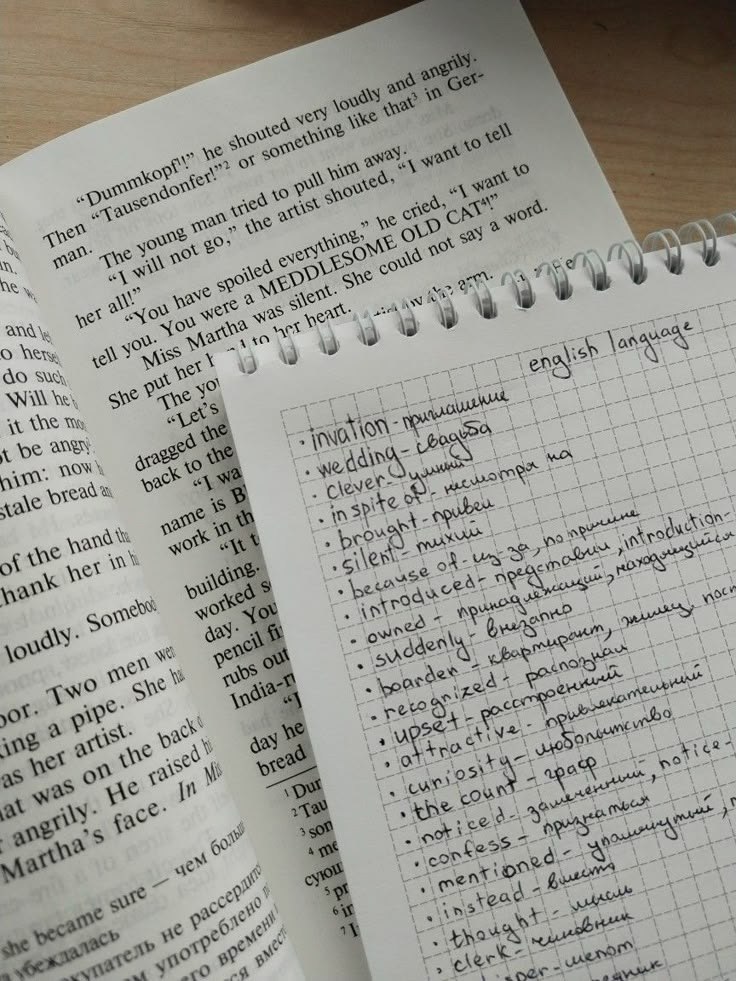 "Dummkopf¹!" he shouted very loudly and angrily.
Then "Tausendonfer!"² or something like that³ in Ger-
man.
The young man tried to pull him away.
"I will not go," the artist shouted, "I want to tell
her all!"
"You have spoiled everything," he cried, "I want to
tell you. You were a MEDDLESOME OLD CAT⁴!"
Miss Martha was silent. She could not say a word.
She put her hand to her heart.
The
by the arm.
"Let's
dragged the
back to the
"I
name is
work in th
"It
building.
worked
day. You
pencil
rubs out
India-
day he
bread
and
to
do such
Will he
it the
be angry
him: now
stale bread
of the hand
thank her in
loudly.
Two men
king a pipe. She
as her artist.
at was on the back
angrily. He raised
Martha's face. In
she became sure — чем
не рассердит
убеждалась
употреблено
времени
english language
· invation - приглашение
· wedding - свадьба
· clever - умный
· in spite of - несмотря на
· brought - привел
· silent - тихий
· because of - из-за, по причине
· introduced - представил, introduction-
· owned - принадлежащий, находящийся
· suddenly - внезапно
· boarder - квартирант, жилец,
· recognized - распознал
· upset - расстроенный
· attractive - привлекательный
· curiosity - любопытство
· the count - граф
· noticed - замеченный, notice-
· confess - признаться
· mentioned - упомянутый,
· instead - вместо
· thought - мысль
· clerk - чиновник
шепот